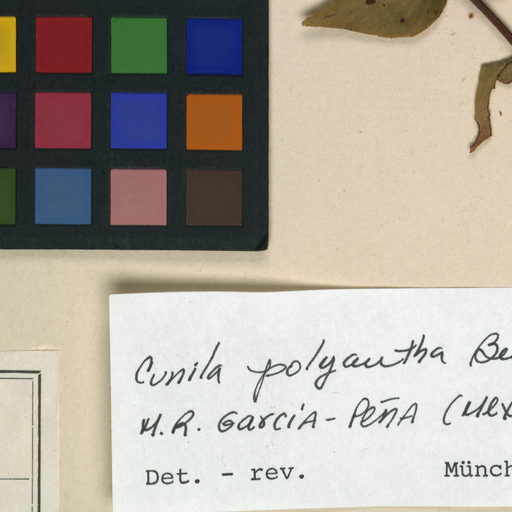 Cunila polyantha Be
M.R. García-Peña (Mex
Det. - rev. Münch